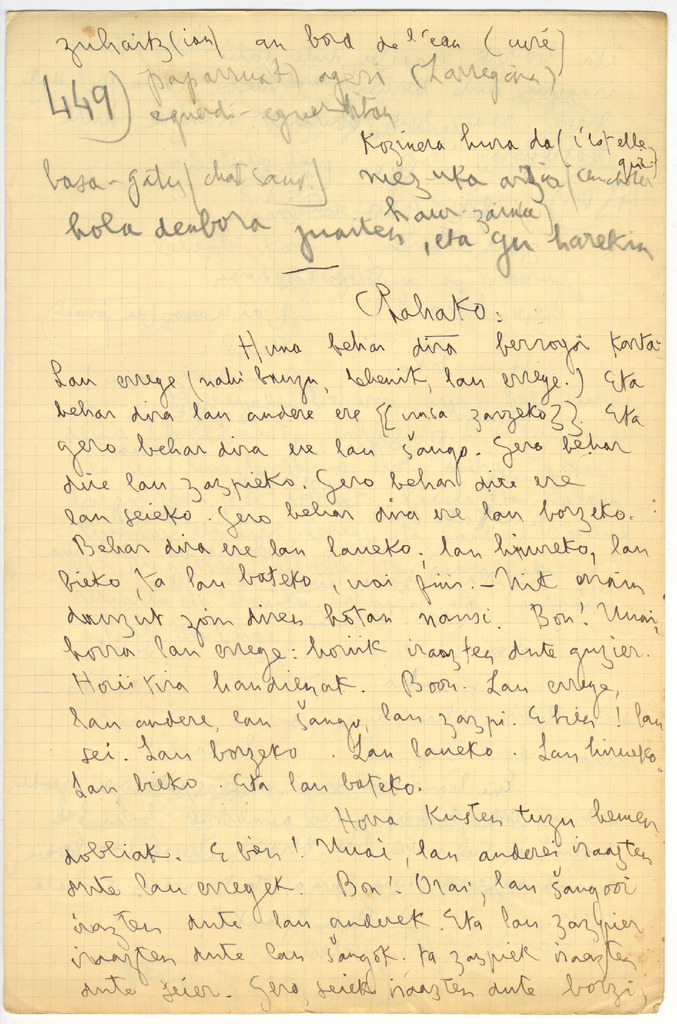 zuhaitz(ian) au bord de l'eau (curé)
449) paparruat) ageri (Larregain)
eguerdi-eguerditan
Kozinera hura da (c'est elle qui)
basa-gatu (chat sauv.) nezuka
hola denbora juaiten, eta gu harekin
Rahako:
Huna behar dira berrogoi karta:
Lau errege (nahi bauzu, lehenik, lau errege.) Eta
behar dira lau andere ere. Eta
gero behar dira ere lau šango. Gero behar
dire lau zazpieko. Gero behar dire ere
lau seieko. Gero behar dira ere lau borzeko.
Behar dira ere lau laueko, lau hirureko, lau
bieko, ta lau bateko,
zoin diren hotan nausi. Bon! Orai,
horra lau errege: horiik iraazten dute guzier.
Horiik tira handienak. Boon. Lau errege,
lau andere, lau šango, lau zazpi. E bien! lau
sei. Lau borzeko. Lau laueko. Lau hirureko.
Lau bieko. Eta lau bateko.
Horra kusten tuzu hemen
dobliak. E bien! Orai, lau anderei iraazten
dute lau erregek. Bon! Orai, lau šangoori
iraazten dute lau anderek. Eta lau zazpier
iraazten dute lau šangok. Ta zazpiek iraazten
dute seier. Gero, seiek iraazten dute borzi